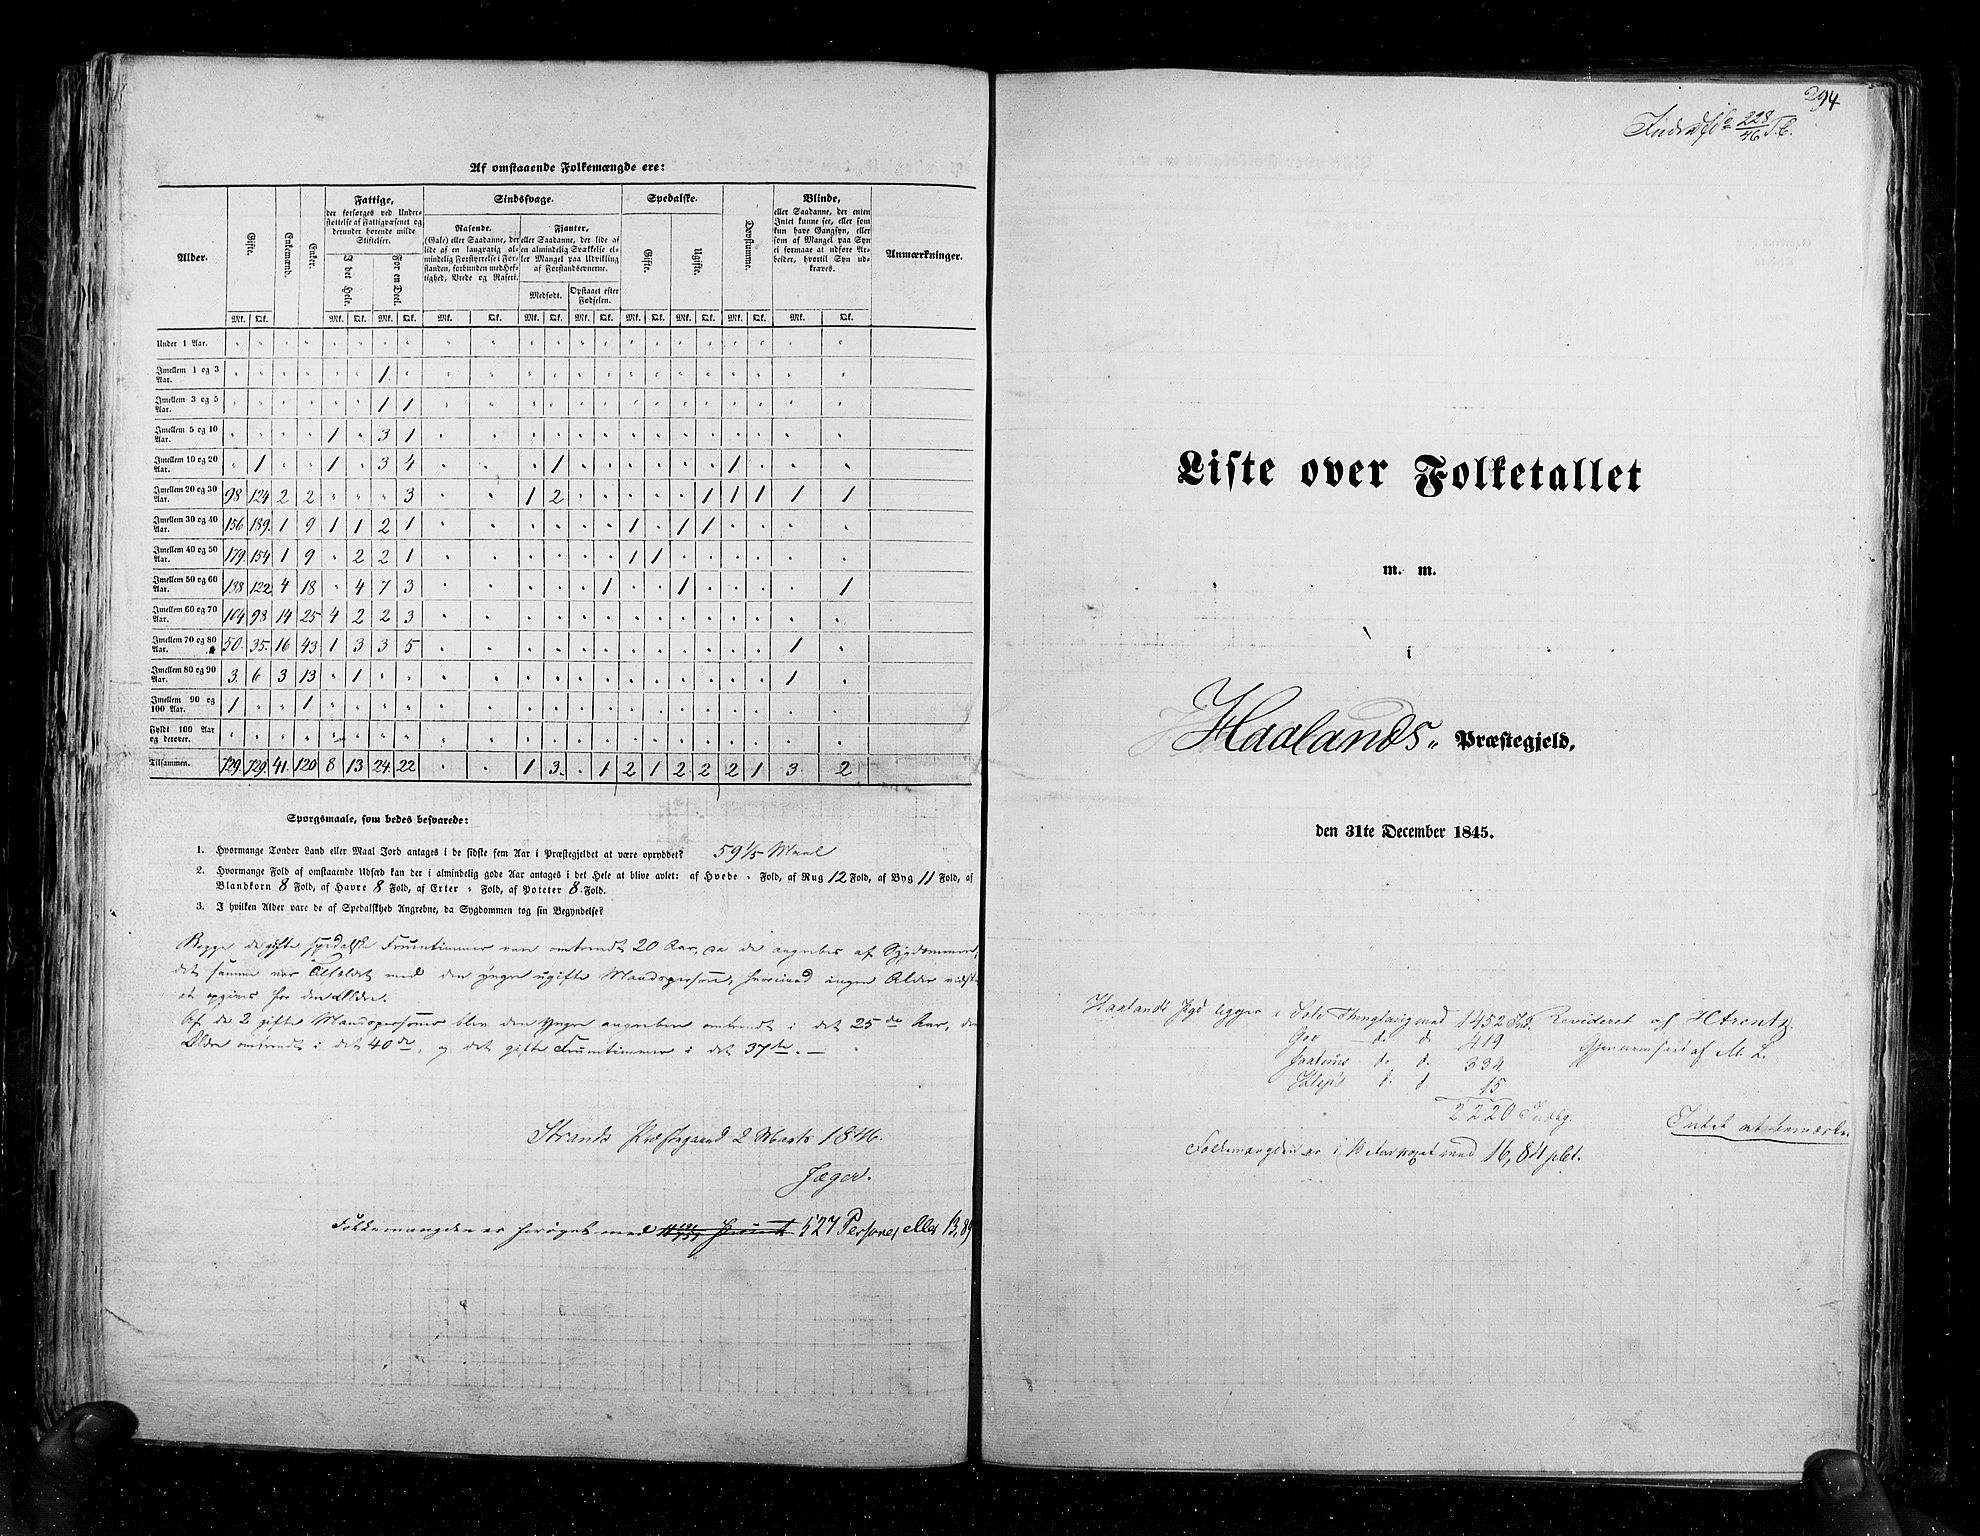 Af omstaaende Folkemængde ere:
Alder. Gifte. Enkemænd. Enker. Fattige, der forsørges ved Understøttelse af Fattigvæsenet og derunder hørende milde Stiftelser. Sindssvage. Spedalske. Døvstumme. Blinde, eller Saadanne, der enten Intet kunne see, eller som kun have Gangsyn, eller som af Mangel paa Syn ei formaae at udføre Arbeider, hvortil Syn udkræves. Anmærkninger.
I det Hele. For en Deel. Rasende. (Gale) eller Saadanne, der lide af en langvarig almindelig Forstyrrelse i Forstanden, forbunden med Heftighed, Vrede og Raseri. Fianter, eller Saadanne, der lide af en almindelig Svækkelse eller Mangel paa Udvikling af Forstandsevnerne. Gifte. Ugifte.
Medfødt. Opstaaet efter Fødselen.
Mk. Qk. Mk. Qk. Mk. Qk. Mk. Qk. Mk. Qk. Mk. Qk. Mk. Qk. Mk. Qk. Mk. Qk. Mk. Qk.
Under 1 Aar. " " " " " " " " " " " " " " " " " " " " " "
Imellem 1 og 3 Aar. " " " " " " 1 " " " " " " " " " " " " " " "
Imellem 3 og 5 Aar. " " " " " " 1 1 " " " " " " " " " " " " " "
Imellem 5 og 10 Aar. " " " " 1 " 3 1 " " " " " " " " " " " " " "
Imellem 10 og 20 Aar. " 1 " " 1 " 3 4 " " " 1 " " " " " " 1 " " "
Imellem 20 og 30 Aar. 98 124 2 2 " " " 3 " " 1 2 " " " " " 1 1 1 1 1
Imellem 30 og 40 Aar. 156 189 1 9 1 1 2 1 " " " " " " 1 " 1 1 " " " "
Imellem 40 og 50 Aar. 179 154 1 9 " 2 2 1 " " " " " " 1 1 " " " " " "
Imellem 50 og 60 Aar. 138 122 4 18 " 4 7 3 " " " " " 1 " " 1 " " " " 1
Imellem 60 og 70 Aar. 104 98 14 25 4 2 2 3 " " " " " " " " " " " " " "
Imellem 70 og 80 Aar. 50 35 16 43 1 3 3 5 " " " " " " " " " " " " 1 "
Imellem 80 og 90 Aar. 3 6 3 13 " 1 " " " " " " " " " " " " " " 1 "
Imellem 90 og 100 Aar. 1 " " 1 " " " " " " " " " " " " " " " " " "
Fyldt 100 Aar og derover. " " " " " " " " " " " " " " " " " " " " " "
Tilsammen. 729 729 41 120 8 13 24 22 " " 1 3 " 1 2 1 2 2 2 1 3 2
Spørgsmaale, som bedes besvarede:
1. Hvormange Tønder Land eller Maal Jord antages i de sidste fem Aar i Præstegjeldet at være opryddet? 59 1/5 Maal
2. Hvormange Fold af omstaaende Udsæd kan der i almindelig gode Aar antages i det Hele at blive avlet: af Hvede " Fold, af Rug 12 Fold, af Byg 11 Fold, af
Blandkorn 8 Fold, af Havre 8 Fold, af Erter " Fold, af Poteter 8 Fold.
3. I hvilken Alder vare de af Spedalskhed Angrebne, da Sygdommen tog sin Begyndelse?
Begge de gifte spedalske Fruentimmer var omtrendt 20 Aar, da de angrebes af Sygdommen,
det samme var Tilfældet med den yngre ugifte Mandsperson, hvorimod ingen Alder vidste
at opgives for den Ældre.
Af de 2 gifte Mandspersoner blev den Yngre angreben omtrendt i det 25de Aar, den
Ældre omtrendt i det 40de, og det gifte Fruentimmer i det 37te. —
Strands Præstegaard 2 Marts 1846.
Jæger.
Folkemængden er forøget med 527 Personer eller 13,89
294
228/46
Liste over Folketallet
m. m.
i
Haalands Præstegjeld,
den 31te December 1845.
Haalands Pgd ligger i Sole Thinglaug med 1452 Ind. Revideret af HArentz.
Goe d. d. 419 Gjennemseet af M. L.
Jaatens d. d. 334
Klep's d. d. 15
2220 Indbg. Intet at bemærke.
Folkemængden er i 10 Aar voxet med 16,84 pCt.